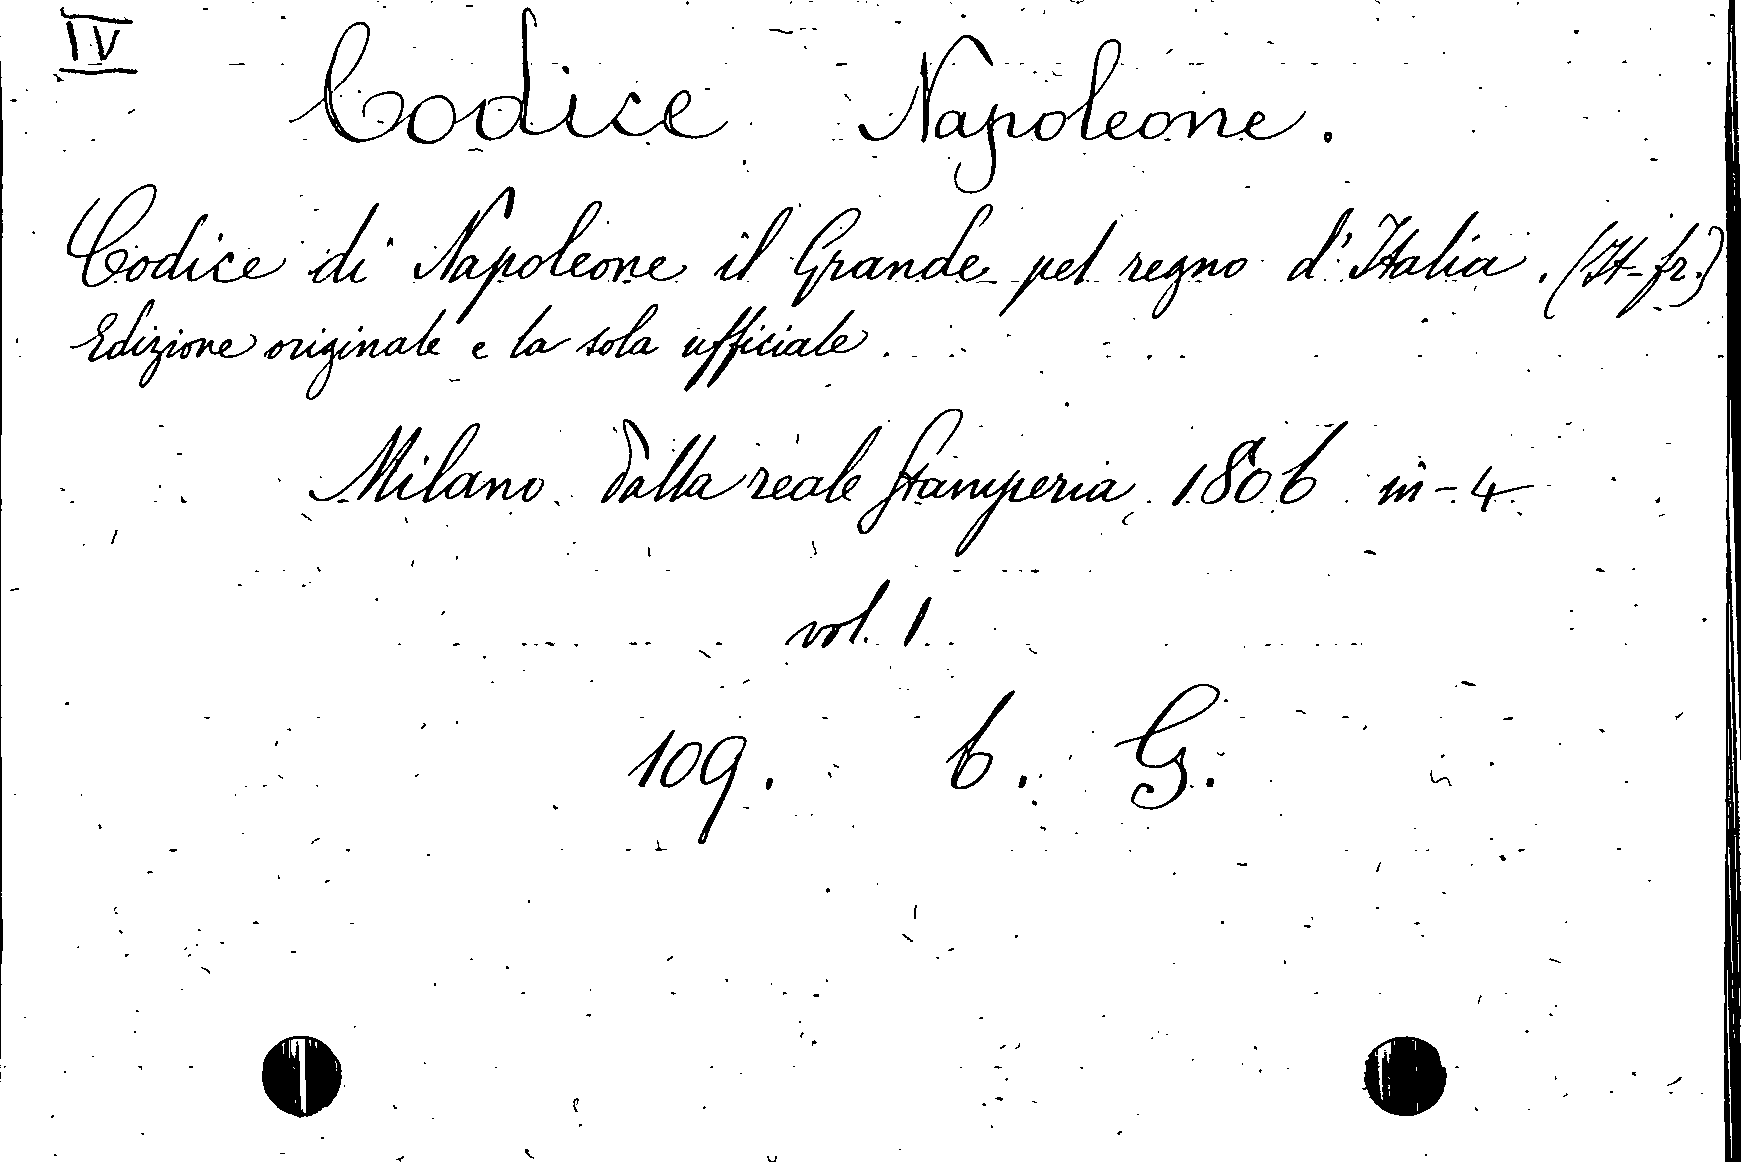 IV
Codice Napoleone.
Codice di Napoleone il Grande pel regno d'Italia. (It-fr.)
Edizione originale e la sola ufficiale.
Milano dalla reale Stamperia 1806 in-4
vol. 1
109. 6. G.